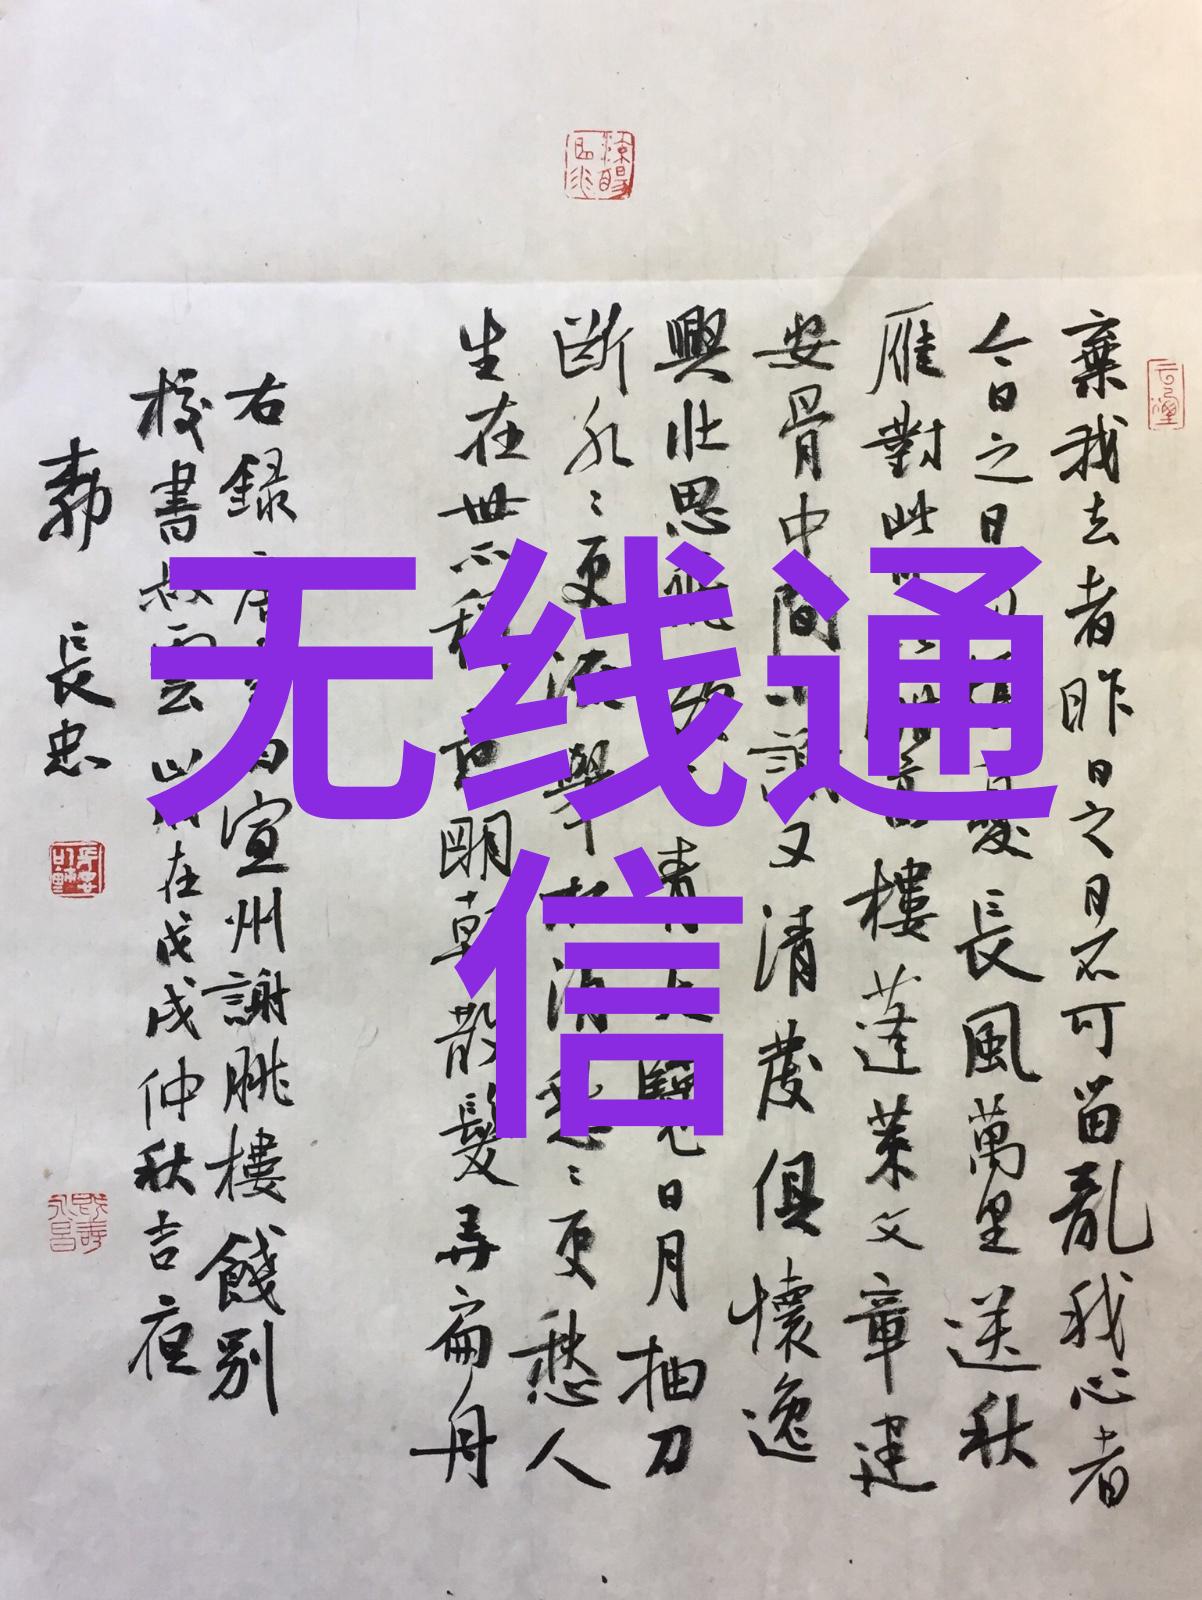 棄我去者昨日之日不可留亂我心者
今日之日憂長風萬里送秋
雁對此樓蓬萊文章建
安骨中間小謝又清發俱懷逸
興壯思飛青天覽日月抽刀
斷水々更流舉杯消愁々更愁人
生在世不稱意明朝散髮弄扁舟
右錄唐白宣州謝朓樓餞別
校書叔雲歲在戊戌仲秋吉夜
郭長忠
无线通
信